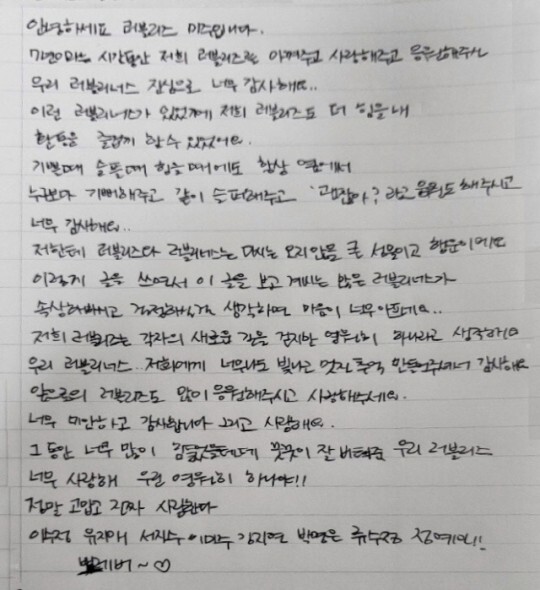 안녕하세요 러블리즈 미주입니다.
7년이라는 시간동안 저희 러블리즈를 아껴주고 사랑해주고 응원해주신
우리 러블리너스 진심으로 너무 감사해요..
이런 러블리너스가 있었기에 저희 러블리즈도 더 힘을 내
활동을 즐겁게 할 수 있었어요.
기쁠때 슬플때 힘들때에도 항상 옆에서
누구보다 기뻐해주고 같이 슬퍼해주고 '괜찮아? 라고 응원도 해주시고
너무 감사해요..
저한테 러블리즈와 러블리너스는 다시는 오지 않을 큰 선물이고 행운이에요
이렇게 글을 쓰면서 이 글을 보고 계시는 많은 러블리너스가
속상해하시고 걱정하실걸 생각하면 마음이 너무 아프네요..
저희 러블리즈는 각자의 새로운 길을 걷지만 영원히 하나라고 생각해요
우리 러블리너스.. 저희에게 너무나도 빛나고 멋진 추억 만들어주셔서 감사해요
앞으로의 러블리즈도 많이 응원해주시고 사랑해주세요.
너무 미안하고 감사합니다 그리고 사랑해요.
그동안 너무 많이 힘들었을텐데 꿋꿋이 잘 버텨준 우리 러블리즈
너무 사랑해 우린 영원히 하나야!!
정말 고맙고 진짜 사랑한다
이수정 유지애 서지수 이미주 김지연 박명은 류수정 정예인!!
뽀에버~♡